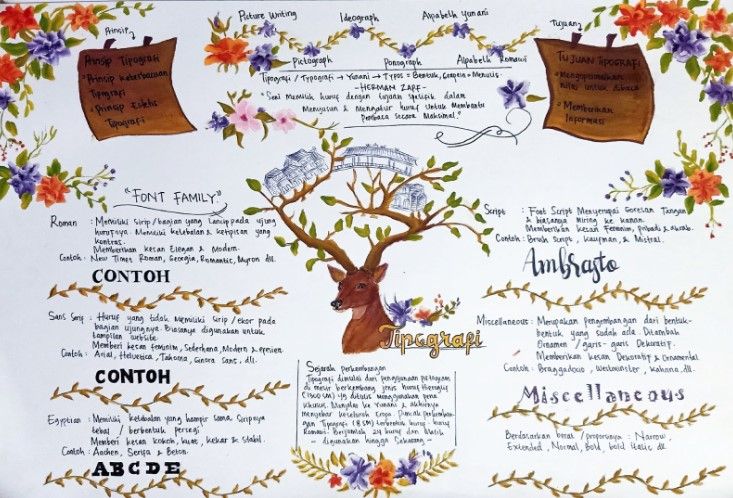 Prinsip
Prinsip Tipografi
• Prinsip Keterbacaan
Tipografi
• Prinsip Estetis
Tipografi
Picture Writing Ideograph Alpabeth Yunani
Pictograph Ponograph Alpabeth Romawi
Tipografi / Typografi → Yunani → Typos = Bentuk, Grapein = Menulis.
- HERMAN ZARF -
"Seni Memilih huruf dengan tujuan spesifik dalam
Menyusun & Mengatur huruf untuk Membantu
Pembaca secara Maksimal."
Tujuan
TUJUAN TIPOGRAFI
• Mengoptimalkan
nilai untuk dibaca
• Memberikan
Informasi
"FONT FAMILY"
Roman : Memiliki sirip/bagian yang lancip pada ujung
hurufnya. Memiliki ketebalan & ketipisan yang
kontras.
Memberikan kesan Elegan & Modern.
Contoh : New Times Roman, Georgia, Romantic, Myron dll.
CONTOH
Sans Serif : Huruf yang tidak memiliki sirip/ekor pada
bagian ujungnya. Biasanya digunakan untuk
tampilan website
Memberi kesan feminim, Sederhana, Modern &
Contoh : Arial, Helvetica, Tahoma, Ginora sans, dll.
CONTOH
Egyptian : Memiliki ketebalan yang hampir sama. Siripnya
tebal / berbentuk persegi
Memberi kesan kokoh, kuat, kekar & stabil.
Contoh : Aachen, Serifa & Beton.
ABCDE
Tipografi
Sejarah perkembangan
Tipografi dimulai dari penggunaan
di mesir berkembang jenis huruf Hieroglif
(1300 SM) yg ditulis menggunakan pena
khusus. Mengalir ke Yunani & akhirnya
menyebar keseluruh Eropa. Puncak perkembangan
Tipografi (8 SM) terbentuk huruf-huruf
Romawi. Berjumlah 24 huruf dan
- digunakan hingga Sekarang -
Script : Font Script Menyerupai Goresan Tangan
& biasanya miring ke kanan.
Memberikan kesan Feminim, pribadi & akrab.
Contoh : Brush Script, Kaufman, & Mistral.
Ambrasto
Miscellaneous : Merupakan pengembangan dari bentuk-
bentuk yang sudah ada. Ditambah
Ornamen / garis-garis Dekoratif.
Memberikan kesan Dekoratif & Ornamental
Contoh : Braggadocio, Westminster, Kahana, dll.
Miscellaneous
Berdasarkan berat / proporsinya : Narrow,
Extended, Normal, Bold, bold Italic dll